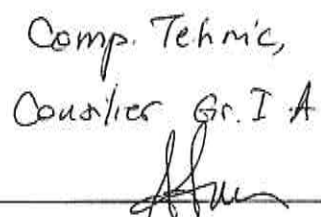 Comp. Tehnic,
Consilier Gr. I A